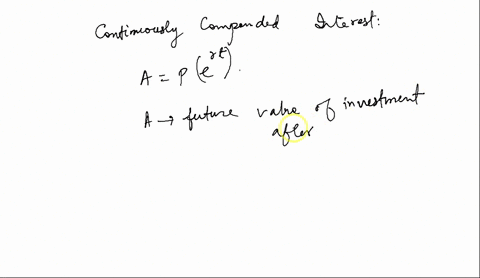 Continuously Compounded Interest:
A = P(e^{rt}).
A → future value of investment
after